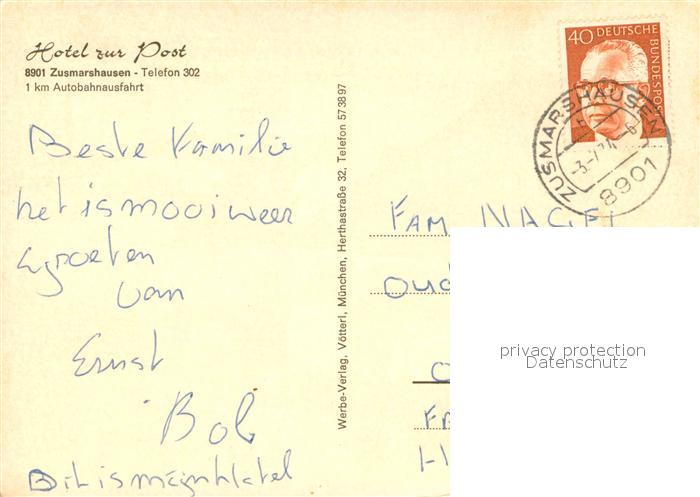 Hotel zur Post
8901 Zusmarshausen - Telefon 302
1 km Autobahnausfahrt
Beste Familie
het is mooi weer
groeten
van
Ernst
Bob
Dit is mijn Hotel
Werbe-Verlag, Vötterl, München, Herthastraße 32, Telefon 573897
40 DEUTSCHE BUNDESPOST
ZUSMARSHAUSEN
8901
FAM NAGEL
OUD
privacy protection
Datenschutz